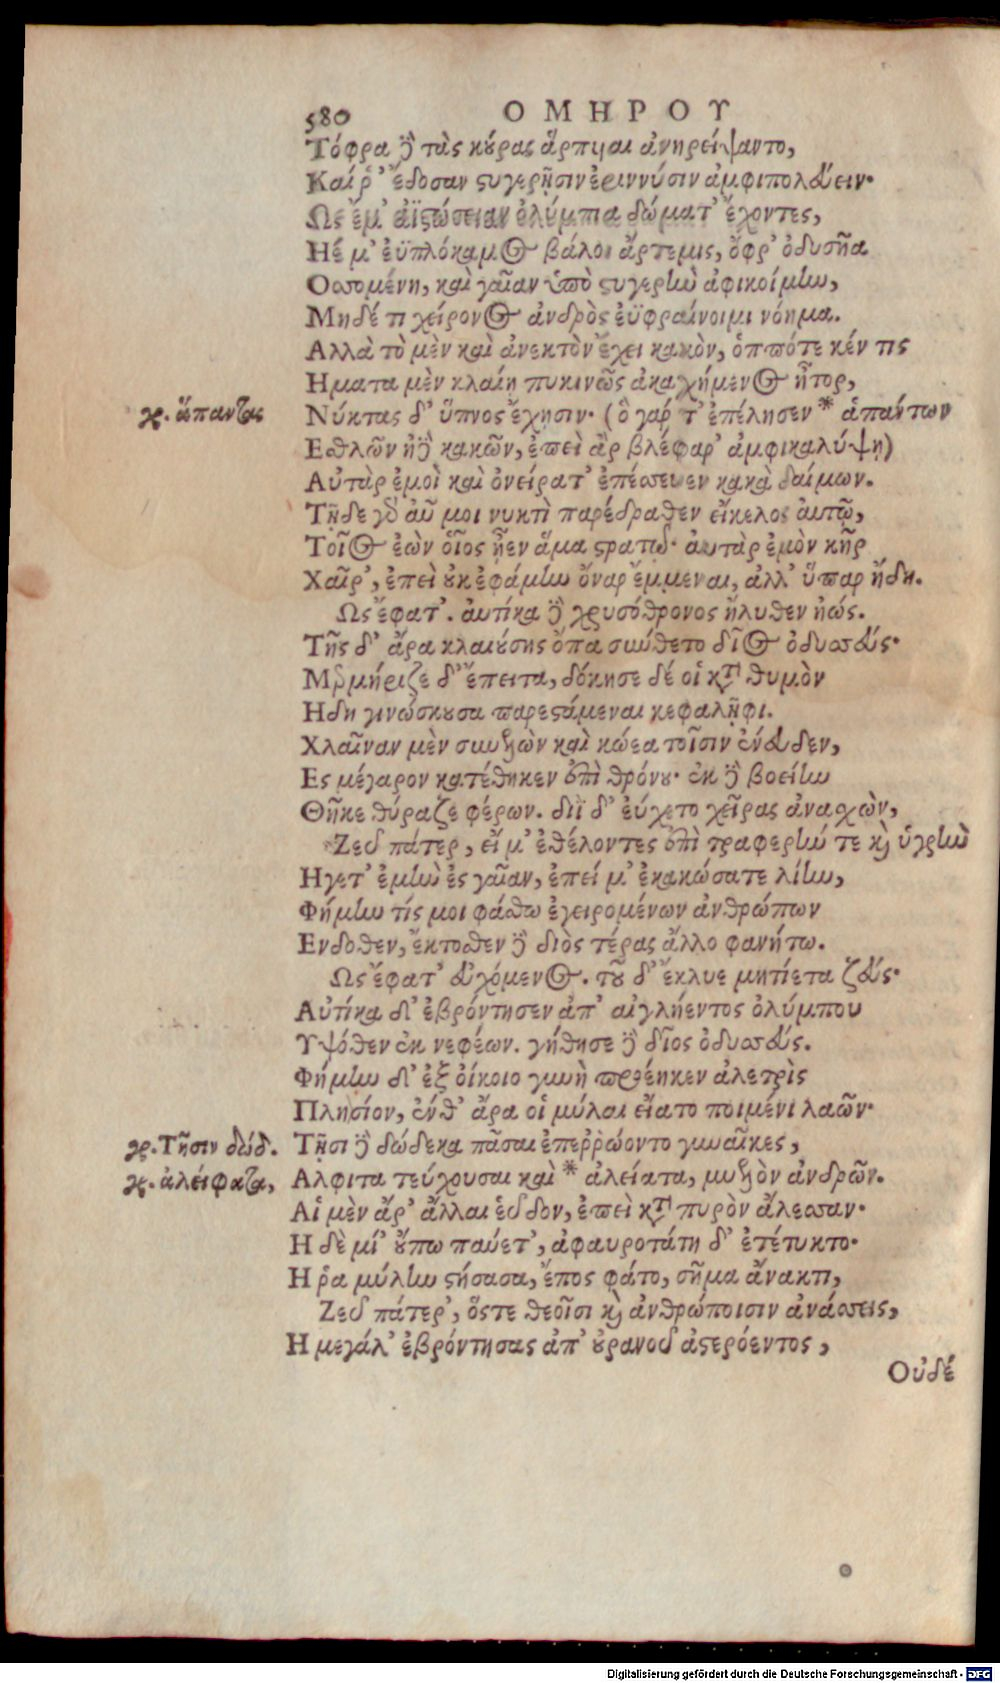 580 ΟΜΗΡΟΥ
Τόφρα δὲ τὰς κούρας ἅρπυιαι ἀνηρείψαντο,
Καί ῥ' ἔδοσαν στυγερῇσιν ἐριννύσιν ἀμφιπολεύειν·
Ως ἔμ' ἀϊστώσειαν ὀλύμπια δώματ' ἔχοντες,
Ηέ μ' ἐϋπλόκαμος βάλοι ἄρτεμις, ὄφρ' ὀδυσῆα
Οσσομένη, καὶ γαῖαν ὑπὸ στυγερὴν ἀφικοίμην,
Μηδέ τι χείρονος ἀνδρὸς ἐϋφραίνοιμι νόημα.
Αλλὰ τὸ μὲν καὶ ἀνεκτὸν ἔχει κακὸν, ὁππότε κέν τις
Ηματα μὲν κλαίη πυκινῶς ἀκαχήμενος ἦτορ,
γρ. ἅπαντας Νύκτας δ' ὕπνος ἔχησιν· (ὃ γάρ τ' ἐπέλησεν * ἁπάντων
Εσθλῶν ἠδὲ κακῶν, ἐπεὶ ἂρ βλέφαρ' ἀμφικαλύψῃ)
Αὐτὰρ ἐμοὶ καὶ ὀνείρατ' ἐπέσσευεν κακὰ δαίμων.
Τῇδε γὰρ αὖ μοι νυκτὶ παρέδραθεν εἴκελος αὐτῷ,
Τοῖος ἐὼν οἷος ἦεν ἅμα στρατῷ· αὐτὰρ ἐμὸν κῆρ
Χαῖρ', ἐπεὶ οὐκ ἐφάμην ὄναρ ἔμμεναι, ἀλλ' ὕπαρ ἤδη.
Ως ἔφατ'. αὐτίκα δὲ χρυσόθρονος ἤλυθεν ἠώς.
Τῆς δ' ἄρα κλαιούσης ὄπα σύνθετο δῖος ὀδυσσεύς·
Μερμήριζε δ' ἔπειτα, δόκησε δέ οἱ κατὰ θυμὸν
Ηδη γινώσκουσα παρεστάμεναι κεφαλῆφι.
Χλαῖναν μὲν συνελὼν καὶ κώεα τοῖσιν ἐνεῦδεν,
Ες μέγαρον κατέθηκεν ἐπὶ θρόνου· ἐκ δὲ βοείην
Θῆκε θύραζε φέρων. διῒ δ' εὔχετο χεῖρας ἀνασχὼν,
Ζεῦ πάτερ, εἴ μ' ἐθέλοντες ἐπὶ τραφερήν τε καὶ ὑγρὴν
Ηγετ' ἐμὴν ἐς γαῖαν, ἐπεί μ' ἐκακώσατε λίην,
Φήμην τίς μοι φάσθω ἐγειρομένων ἀνθρώπων
Ενδοθεν, ἔκτοσθεν δὲ διὸς τέρας ἄλλο φανήτω.
Ως ἔφατ' εὐχόμενος. τοῦ δ' ἔκλυε μητίετα ζεύς·
Αὐτίκα δ' ἐβρόντησεν ἀπ' αἰγλήεντος ὀλύμπου
Υψόθεν ἐκ νεφέων. γήθησε δὲ δῖος ὀδυσσεύς.
Φήμην δ' ἐξ οἴκοιο γυνὴ προέηκεν ἀλετρὶς
Πλησίον, ἔνθ' ἄρα οἱ μύλαι εἵατο ποιμένι λαῶν·
γρ. Τῆσιν δώδ. Τῇσι δὲ δώδεκα πᾶσαι ἐπερῥώοντο γυναῖκες,
γρ. ἀλείφατα, Αλφιτα τεύχουσαι καὶ * ἀλείατα, μυελὸν ἀνδρῶν.
Αἱ μὲν ἄρ' ἄλλαι εὗδον, ἐπεὶ κατὰ πυρὸν ἄλεσσαν·
Η δὲ μί' οὔπω παύετ', ἀφαυροτάτη δ' ἐτέτυκτο·
Η ῥα μύλην στήσασα, ἔπος φάτο, σῆμα ἄνακτι,
Ζεῦ πάτερ, ὅστε θεοῖσι καὶ ἀνθρώποισιν ἀνάσσεις,
Η μεγάλ' ἐβρόντησας ἀπ' οὐρανοῦ ἀστερόεντος,
Οὐδέ
Digitalisierung gefördert durch die Deutsche Forschungsgemeinschaft - DFG